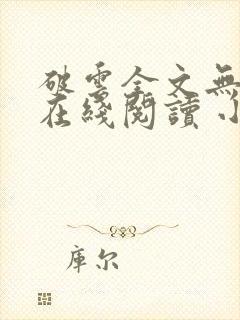 破雲全文無
在綫閱讀 小
庫尔